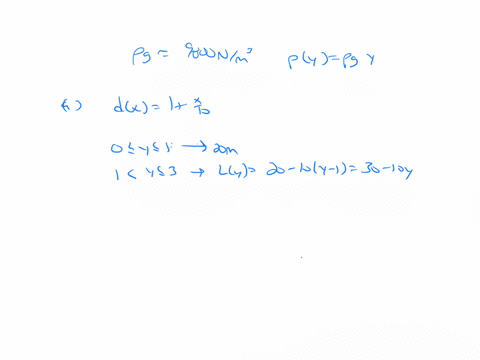 ρg = 9800 N/m³ p(y) = ρg y
d(x) = 1 + x/10
0 ≤ y ≤ 1 → 20m
1 < y ≤ 3 → L(y) = 20 - 10(y-1) = 30 - 10y